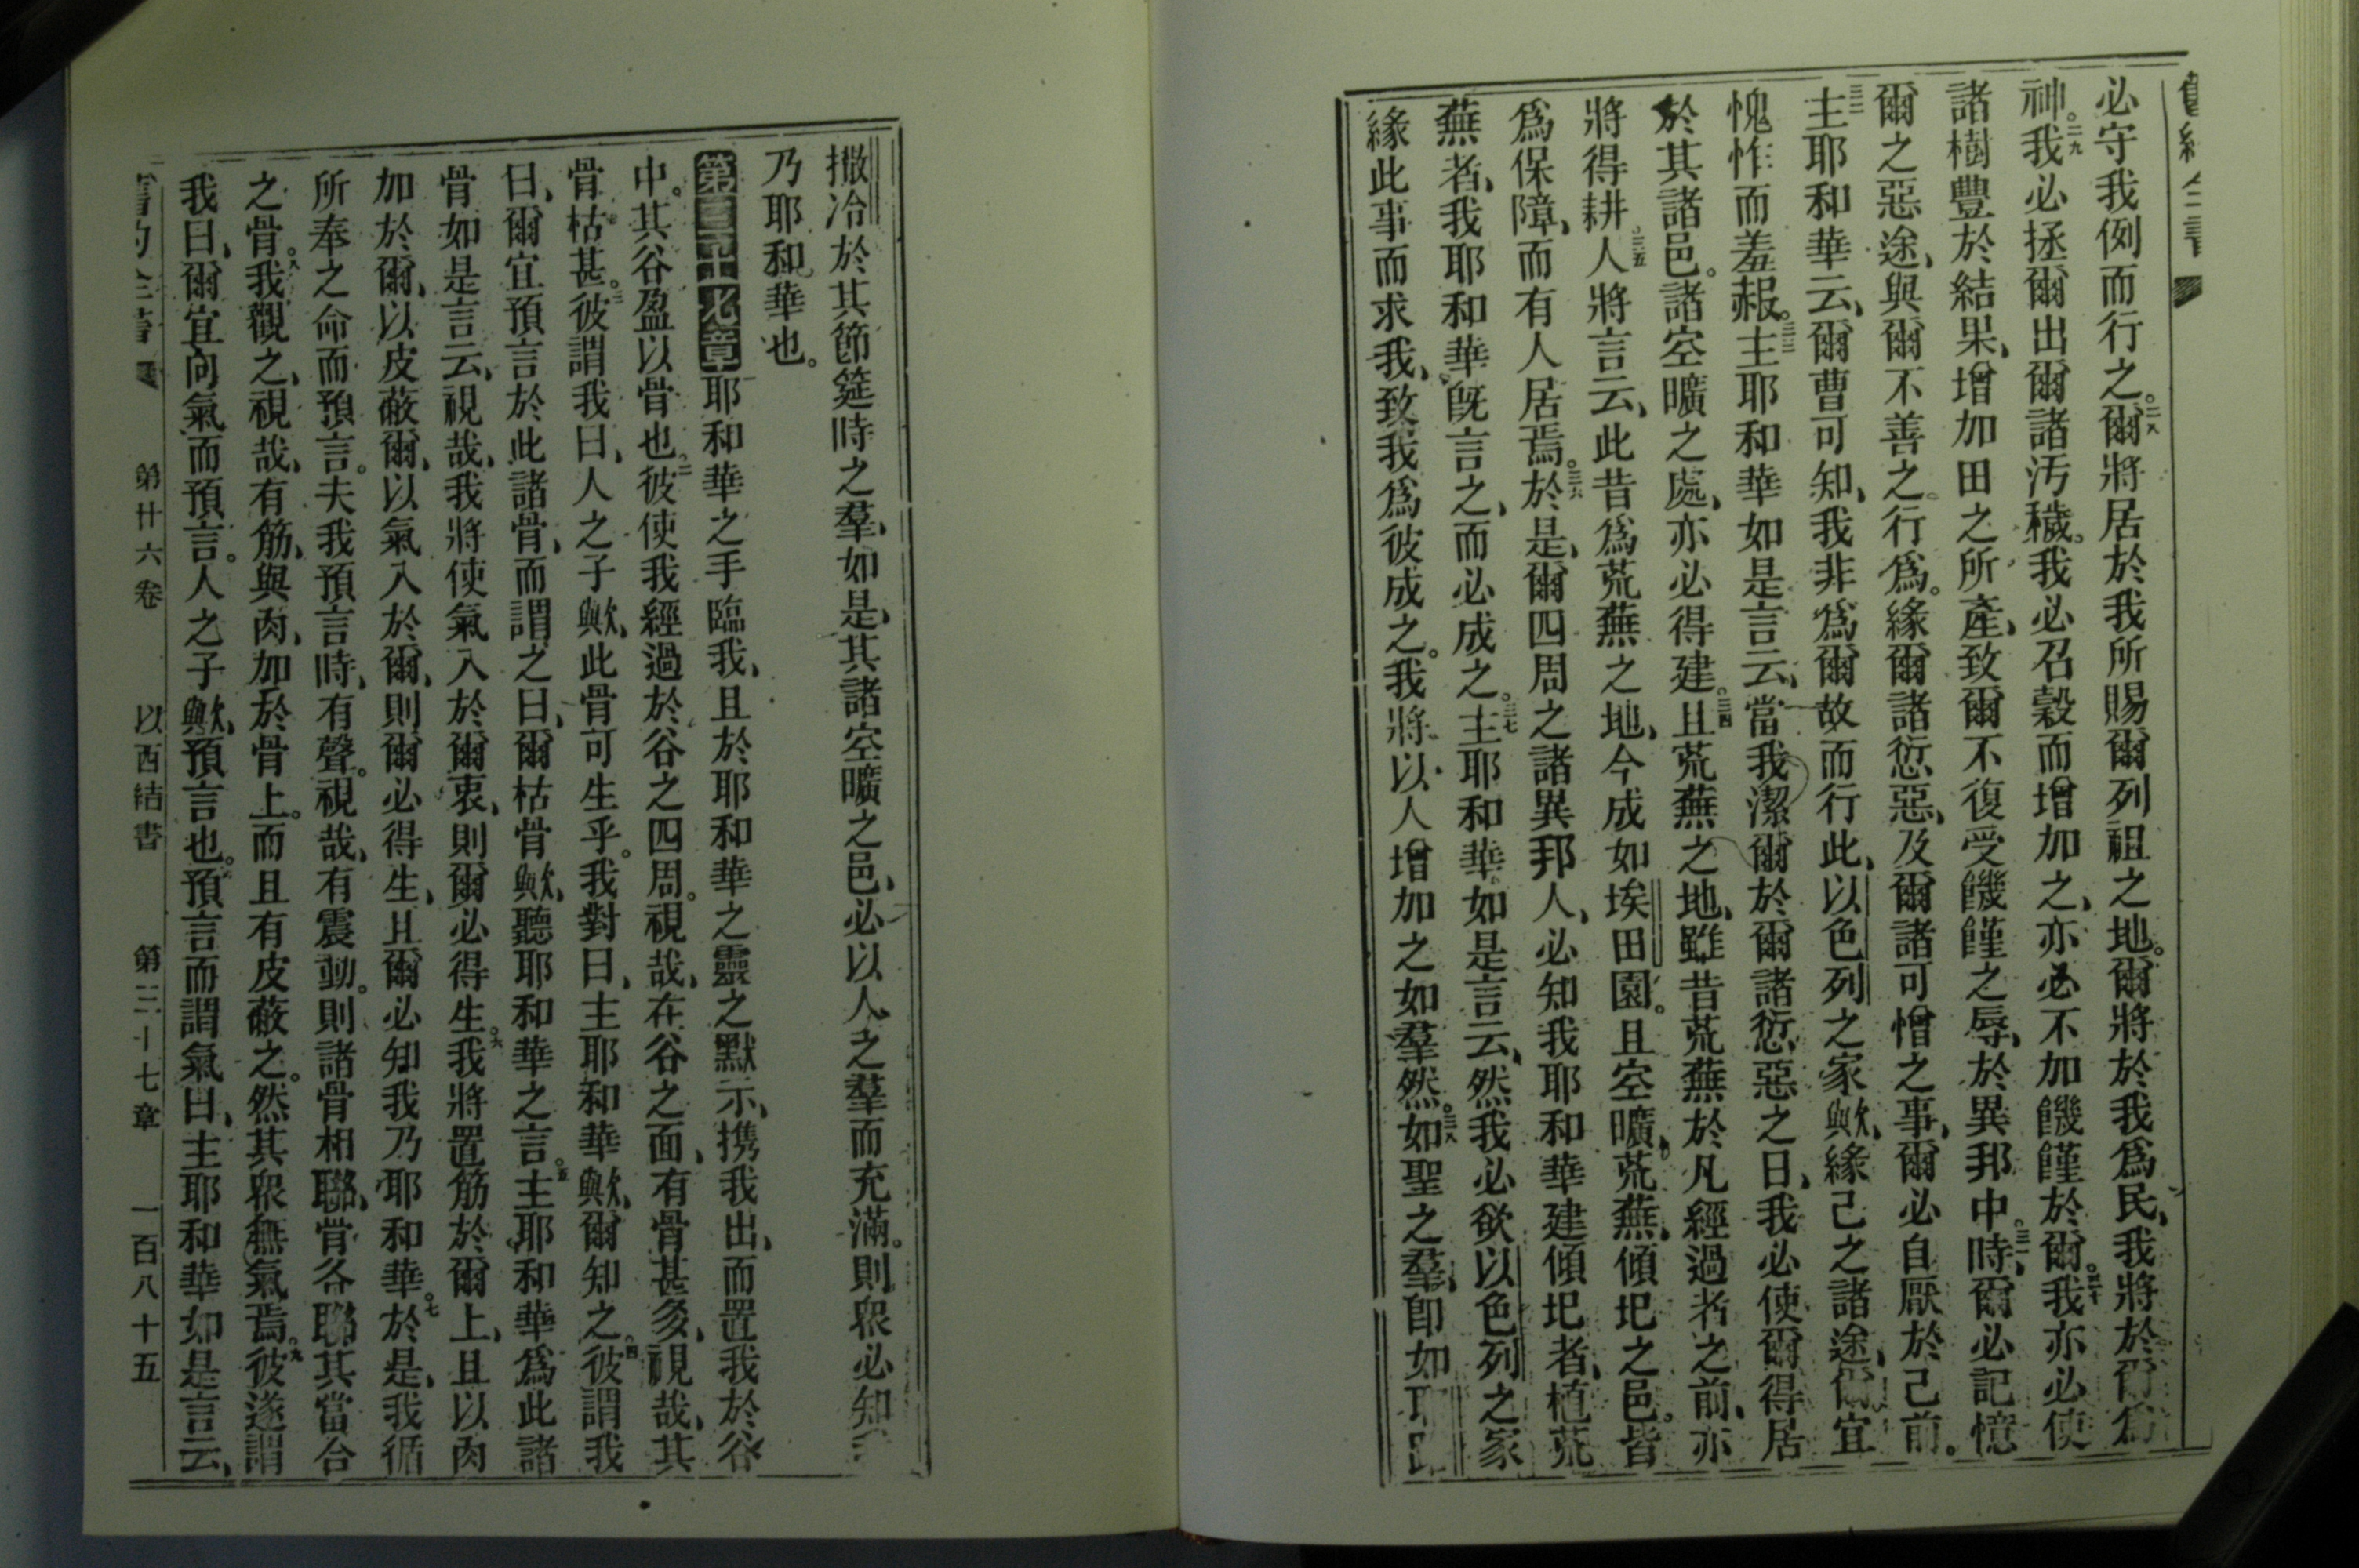 舊約全書
必守我例而行之。二八爾將居於我所賜爾列祖之地。爾將於我爲民、我將於爾爲
神。二九我必拯爾出爾諸汚穢。我必召穀而增加之、亦必不加饑饉於爾。三十我亦必使
諸樹豐於結果、增加田之所產、致爾不復受饑饉之辱、於異邦中。三一時、爾必記憶
爾之惡途、與爾不善之行爲。緣爾諸愆惡、及爾諸可憎之事、爾必自厭於己前。
三二主耶和華云、爾曹可知、我非爲爾故而行此、以色列之家歟、緣己之諸途、爾宜
愧怍而羞赧。三三主耶和華如是言云、當我潔爾於爾諸愆惡之日、我必使爾得居
於其諸邑。諸空曠之處、亦必得建。三四且荒蕪之地、雖昔荒蕪於凡經過者之前、亦
將得耕。三五人將言云、此昔爲荒蕪之地、今成如埃田園。且空曠、荒蕪、傾圮之邑。皆
爲保障、而有人居焉。三六於是、爾四周之諸異邦人、必知我耶和華建傾圮者、植荒
蕪者、我耶和華既言之、而必成之。三七主耶和華如是言云、然我必欲以色列之家
緣此事而求我、致我爲彼成之。我將以人增加之如羣然。三八如聖之羣、卽如耶路
撒冷於其節筵時之羣、如是、其諸空曠之邑、必以人之羣而充滿。則衆必知
乃耶和華也。
第三十七章耶和華之手臨我、且於耶和華之靈之默示、携我出、而置我於谷
中。其谷盈以骨也。二彼使我經過於谷之四周。視哉、在谷之面、有骨甚多、視哉、其
骨枯甚。三彼謂我曰、人之子歟、此骨可生乎。我對曰、主耶和華歟、爾知之。四彼謂我
曰、爾宜預言於此諸骨、而謂之曰、爾枯骨歟、聽耶和華之言。五主耶和華爲此諸
骨如是言云、視哉、我將使氣入於爾衷、則爾必得生。六我將置筋於爾上、且以肉
加於爾、以皮蔽爾、以氣入於爾、則爾必得生、且爾必知我乃耶和華。七於是、我循
所奉之命而預言。夫我預言時、有聲。視哉、有震動。則諸骨相聯、骨各聯其當合
之骨。八我觀之、視哉、有筋、與肉、加於骨上。而且有皮蔽之。然其衆無氣焉。九彼遂謂
我曰、爾宜向氣而預言。人之子歟、預言也。預言而謂氣曰、主耶和華如是言云、
舊約全書 第廿六卷 以西結書 第三十七章 一百八十五